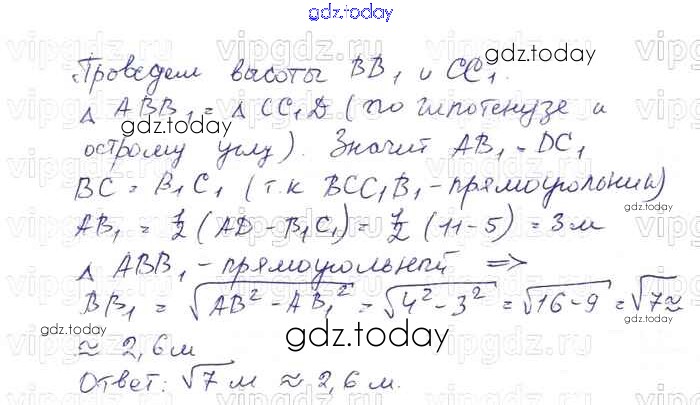 gdz.today
Проведем высоты BB₁ и CC₁.
△ ABB₁ = △ CC₁D (по гипотенузе и
острому углу). Значит AB₁ = DC₁
BC = B₁C₁ (т.к BCC₁B₁ - прямоугольник)
AB₁ = 1/2 (AD - B₁C₁) = 1/2 (11 - 5) = 3 м
△ ABB₁ - прямоугольный =>
BB₁ = √(AB² - AB₁²) = √(4² - 3²) = √(16 - 9) = √7 ≈
≈ 2,6 м
Ответ: √7 м ≈ 2,6 м.
gdz.today
gdz.today
gdz.today
gdz.today
gdz.today
gdz.today
vipgdz.ru